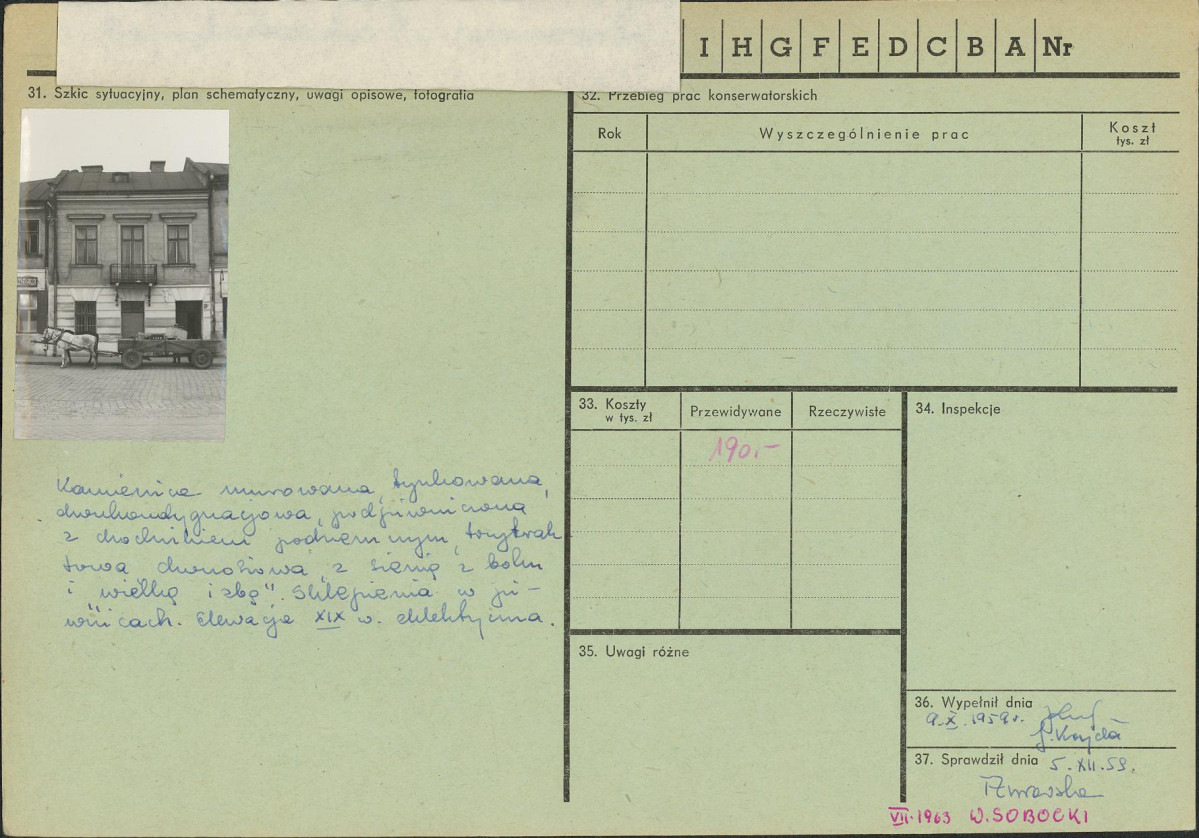 I H G F E D C B A Nr
31. Szkic sytuacyjny, plan schematyczny, uwagi opisowe, fotografia
Kamienica murowana, tynkowana,
dwukondygnacjowa, podpiwniczona
z chodnikiem podziemnym, trzytrak
towa dwuosiowa, z sienią z boku
i "wielką izbą". Sklepienia w pi-
wnicach. Elewacja XIX w. eklektyczna.
32. Przebieg prac konserwatorskich
Rok Wyszczególnienie prac Koszt
tys. zł
33. Koszty
w tys. zł
Przewidywane Rzeczywiste
190.-
34. Inspekcje
35. Uwagi różne
36. Wypełnił dnia
9.X.1959r.
37. Sprawdził dnia 5.XII.59.
VII.1963 W.SOBOCKI